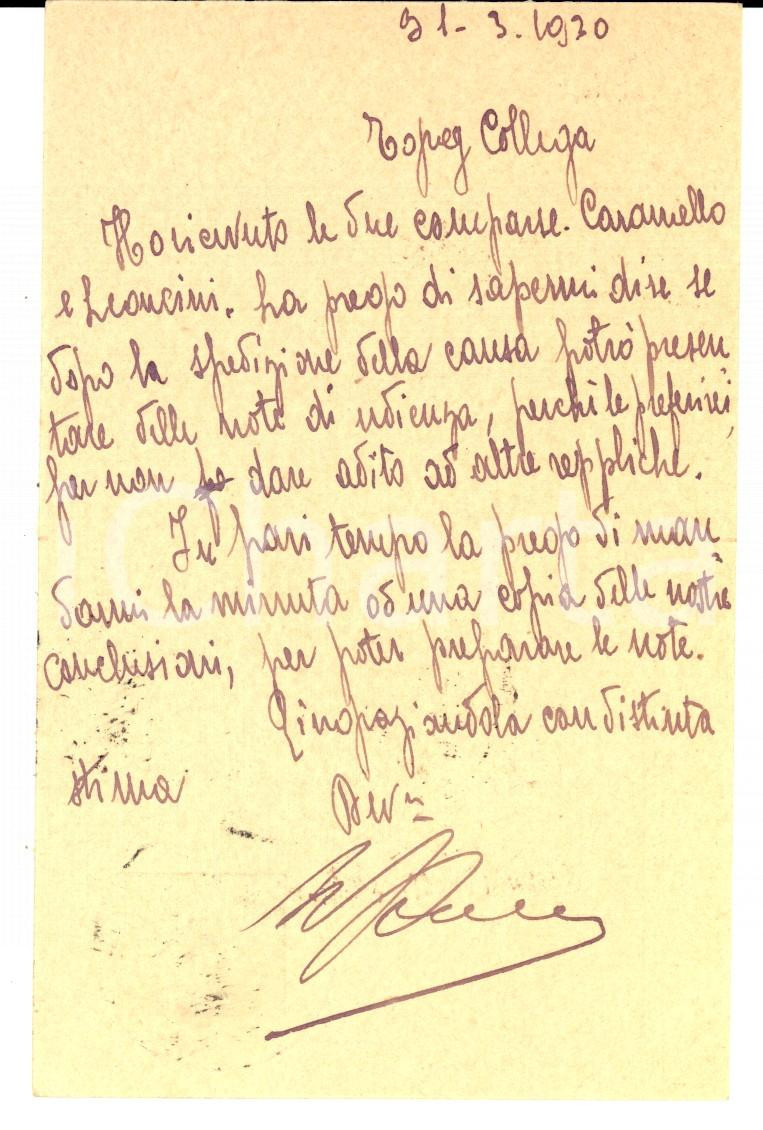 31-3.1930
Egreg Collega
Ho ricevuto le due comparse. Caramello
e Leoncini. La prego di sapermi dire se
dopo la spedizione della causa potrò presen
tare delle note di udienza, perchè le preferirei,
per non dare adito ad altre reppliche.
In pari tempo la prego di man
darmi la minuta od una copia delle nostre
conclusioni, per poter preparare le note.
Ringraziandola con distinta
stima
Dev.